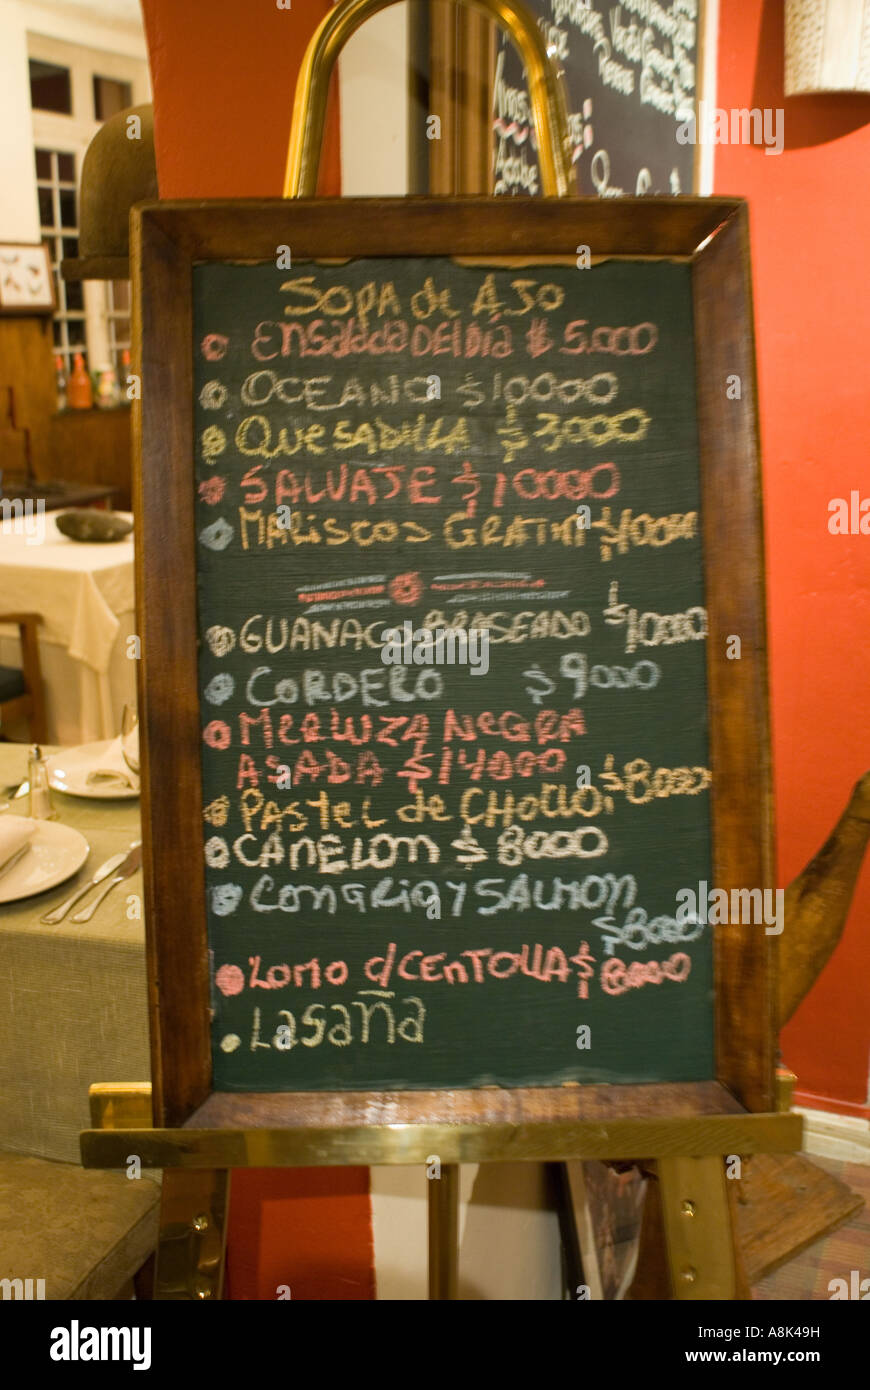 SOPA de AJO
ENSALADA DEL DIA $ 5.000
OCEANO $10000
QUESADILLA $3000
SALVAJE $10000
MARISCOS GRATIN $10000
GUANACO BRASEADO $10000
CORDERO $9000
MERLUZA NEGRA
ASADA $14000
PASTEL de CHOCLO, $8000
CANELON $8000
CONGRIO Y SALMON
$8000
LOMO c/CENTOLLA $8000
. Lasaña
alamy
Image ID: A8K49H
www.alamy.com